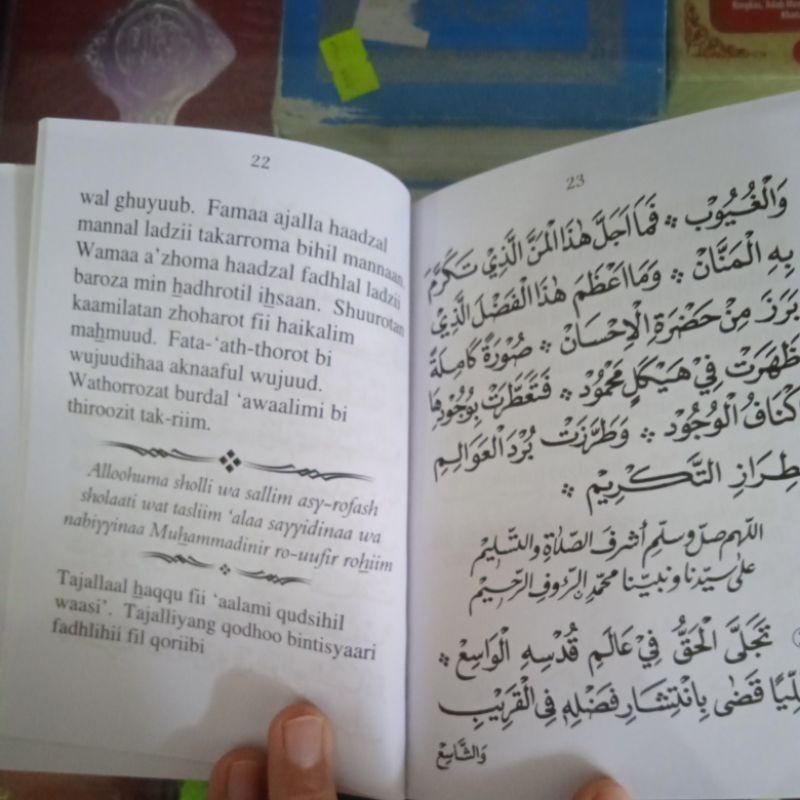 Ringkas, Adab Men
22
wal ghuyuub. Famaa ajalla haadzal
mannal ladzii takarroma bihil mannaan.
Wamaa a'zhoma haadzal fadhlal ladzii
baroza min hadhrotil ihsaan. Shuurotan
kaamilatan zhoharot fii haikalim
mahmuud. Fata-'ath-thorot bi
wujuudihaa aknaaful wujuud.
Wathorrozat burdal 'awaalimi bi
thiroozit tak-riim.
Alloohuma sholli wa sallim asy-rofash
sholaati wat tasliim 'alaa sayyidinaa wa
nabiyyinaa Muhammadinir ro-uufir rohiim
Tajallaal haqqu fii 'aalami qudsihil
waasi'. Tajalliyang qodhoo bintisyaari
fadhlihii fil qoriibi
23
وَالْغُيُوْبِ ❖ فَمَا اَجَلَّ هٰذَا الْمَنَّ الَّذِيْ تَكَرَّمَ
بِهِ الْمَنَّانْ ❖ وَمَا اَعْظَمَ هٰذَا الْفَضْلَ الَّذِيْ
بَرَزَ مِنْ حَضْرَةِ الْاِحْسَانْ ❖ صُوْرَةً كَامِلَةً
ظَهَرَتْ فِيْ هَيْكَلٍ مَحْمُوْدْ ❖ فَتَعَطَّرَتْ بِوُجُوْدِهَا
اَكْنَافُ الْوُجُوْدْ ❖ وَطَرَّزَتْ بُرْدَ الْعَوَالِمِ
بِطِرَازِ التَّكْرِيْمِ ❖
اللهم صل وسلم أشرف الصلاة والتسليم
على سيدنا ونبينا محمد الرؤوف الرحيم
تَجَلَّى الْحَقُّ فِيْ عَالَمِ قُدْسِهِ الْوَاسِعْ ❖
لِّيًا قَضٰى بِانْتِشَارِ فَضْلِهٖ فِى الْقَرِيْبِ
وَالشَّاسِعْ